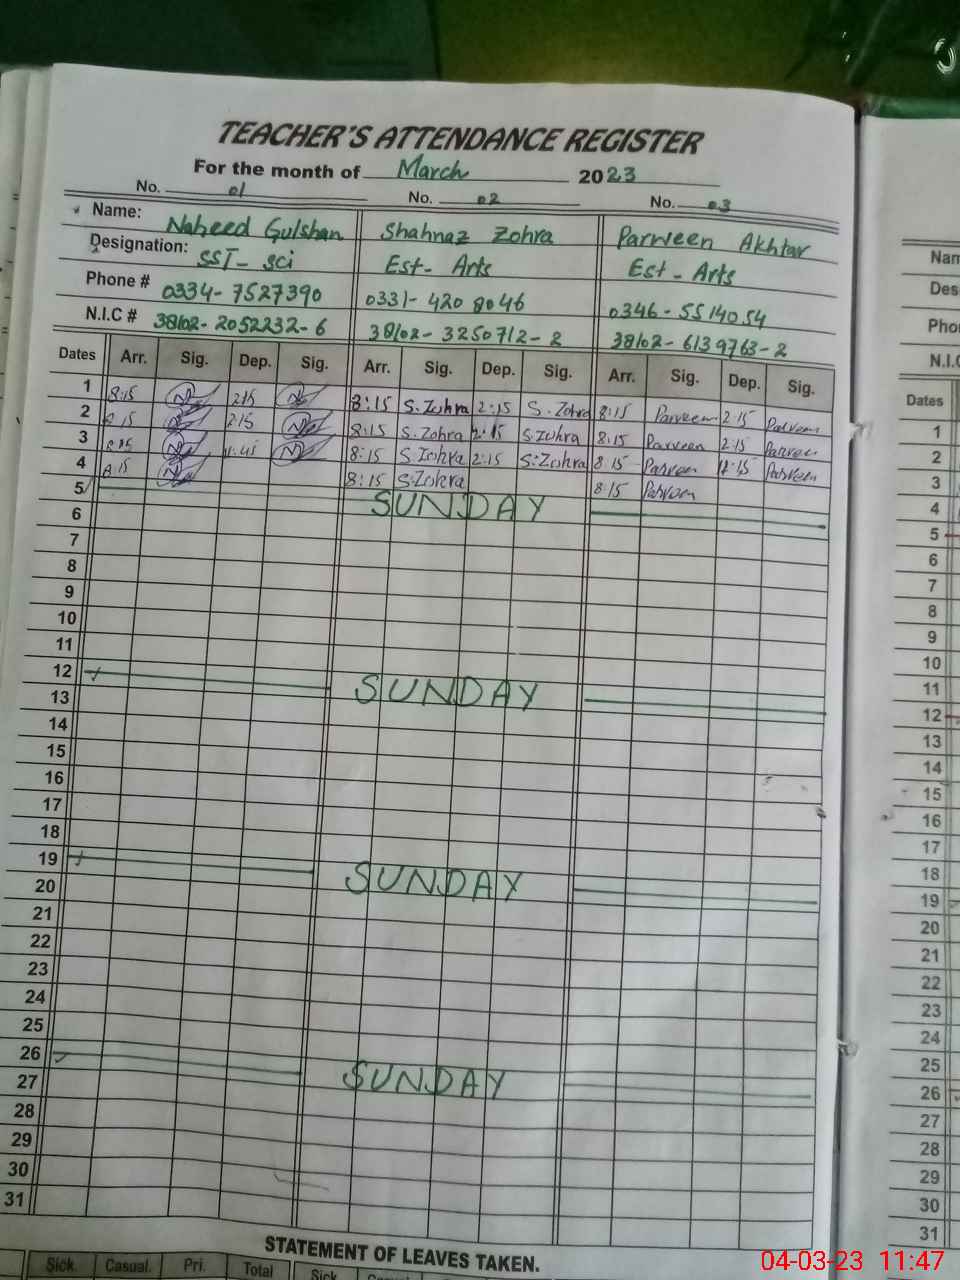 TEACHER'S ATTENDANCE REGISTER
For the month of March 2023
No. 01 No. 02 No. 03
Name: Naheed Gulshan Shahnaz Zohra Parveen Akhtar
Designation: SST- Sci Est- Arts Est- Arts
Phone # 0334-7527390 0331-420 8046 0346-5514054
N.I.C # 38102-2052232-6 38102-3250712-2 38102-6139763-2
Dates Arr. Sig. Dep. Sig. Arr. Sig. Dep. Sig. Arr. Sig. Dep. Sig.
1 8:15 2:15 8:15 S.Zohra 2:15 S.Zohra 8:15 Parveen 2:15 Parveen
2 8:15 2:15 8:15 S.Zohra 2:15 S.Zohra 8:15 Parveen 2:15 Parveen
3 8:15 8:15 S.Zohra 2:15 S.Zohra 8:15 Parveen Parveen
4 8:15 8:15 S.Zohra 8:15 Parveen
5 SUNDAY
6
7
8
9
10
11
12 SUNDAY
13
14
15
16
17
18
19 SUNDAY
20
21
22
23
24
25
26 SUNDAY
27
28
29
30
31
STATEMENT OF LEAVES TAKEN.
Sick. Casual. Pri. Total Sick
Dates
1
2
3
4
5
6
7
8
9
10
11
12
13
14
15
16
17
18
19
20
21
22
23
24
25
26
27
28
29
30
31
04-03-23 11:47